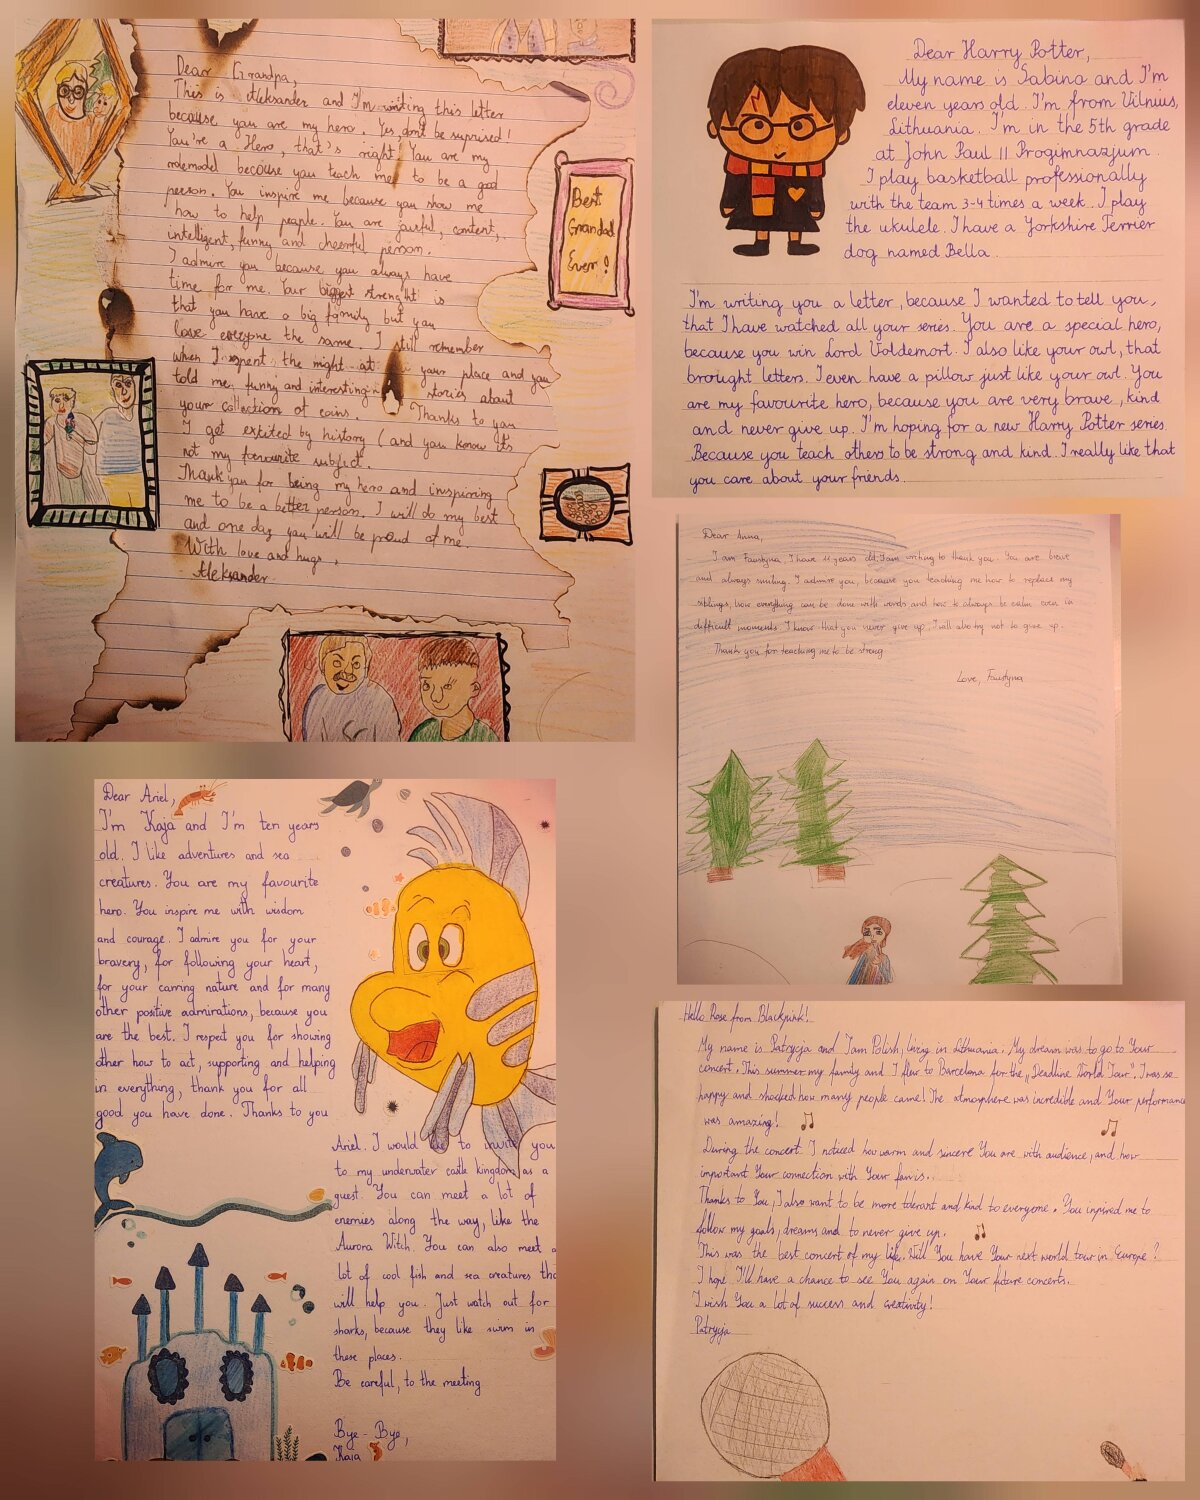 Dear Grandpa,
This is Aleksander and I'm writing this letter
because you are my hero. Yes, don't be suprised!
You're a Hero, that's right! You are my
rolemodel because you teach me to be a good
person. You inspire me because you show me
how to help people. You are joyful, content,
intelligent, funny and cheerful person.
I admire you because you always have
time for me. Your biggest strenght is
that you have a big family but you
love everyone the same. I still remember
when I spent the night at your place and you
told me funny and interesting stories about
your collection of coins. Thanks to you
I get excited by history (and you know it's
not my favourite subject.
Thank you for being my hero and insspiring
me to be a better person. I will do my best
and one day you will be proud of me.
With love and hugs,
Aleksander
Best
Grandad
Ever!
Dear Harry Potter,
My name is Sabina and I'm
eleven years old. I'm from Vilnius,
Lithuania. I'm in the 5th grade
at John Paul II Progimnazjum.
I play basketball professionally
with the team 3-4 times a week. I play
the ukulele. I have a Yorkshire Terrier
dog named Bella.
I'm writing you a letter, because I wanted to tell you,
that I have watched all your series. You are a special hero,
because you win Lord Voldemort. I also like your owl, that
brought letters. I even have a pillow just like your owl. You
are my favourite hero, because you are very brave, kind
and never give up. I'm hoping for a new Harry Potter series.
Because you teach others to be strong and kind. I really like that
you care about your friends.
Dear Anna,
I am Faustyna. I have 11 years old. I am writing to thank you. You are brave
and always smiling. I admire you, because you teaching me how to replace my
siblings, how everything can be done with words and how to always be calm even in
difficult moments. I know that you never give up. I will also try not to give up.
Thank you for teaching me to be strong
Love, Faustyna
Dear Ariel,
I'm Kaja and I'm ten years
old. I like adventures and sea
creatures. You are my favourite
hero. You inspire me with wisdom
and courage. I admire you for your
bravery, for following your heart,
for your carring nature and for many
other positive admirations, because you
are the best. I respect you for showing
other how to act, supporting and helping
in everything, thank you for all
good you have done. Thanks to you
Ariel. I would like to invite you
to my underwater castle kingdom as a
guest. You can meet a lot of
enemies along the way, like the
Aurora Witch. You can also meet a
lot of cool fish and sea creatures tha
will help you. Just watch out for
sharks, because they like swim in
these places.
Be careful, to the meeting
Bye-Bye,
Kaja
Hello Rose from Blackpink!
My name is Patrycja and I am Polish, living in Lithuania. My dream was to go to Your
concert. This summer my family and I flew to Barcelona for the „Deadline World Tour". I was so
happy and shocked how many people came! The atmosphere was incredible and Your performance
was amazing!
During the concert I noticed how warm and sincere You are with audience, and how
important Your connection with Your fan is.
Thanks to You, I also want to be more tolerant and kind to everyone. You inpired me to
follow my goals, dreams and to never give up.
This was the best concert of my life. Will You have Your next world tour in Europe?
I hope I'll have a chance to see You again on Your future concerts.
I wish You a lot of success and creativity!
Patrycja